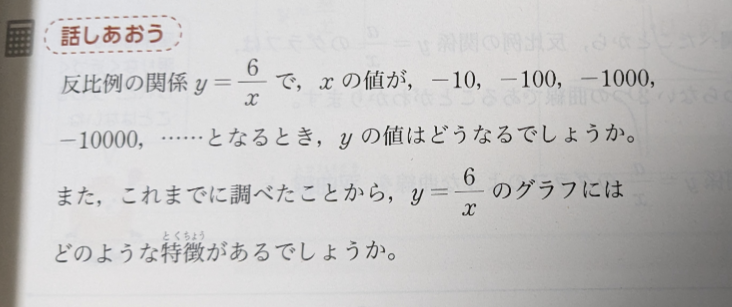 話しあおう
反比例の関係 y = 6/x で，x の値が，−10，−100，−1000，
−10000，……となるとき，y の値はどうなるでしょうか。
また，これまでに調べたことから，y = 6/x のグラフには
とくちょう
どのような特徴があるでしょうか。